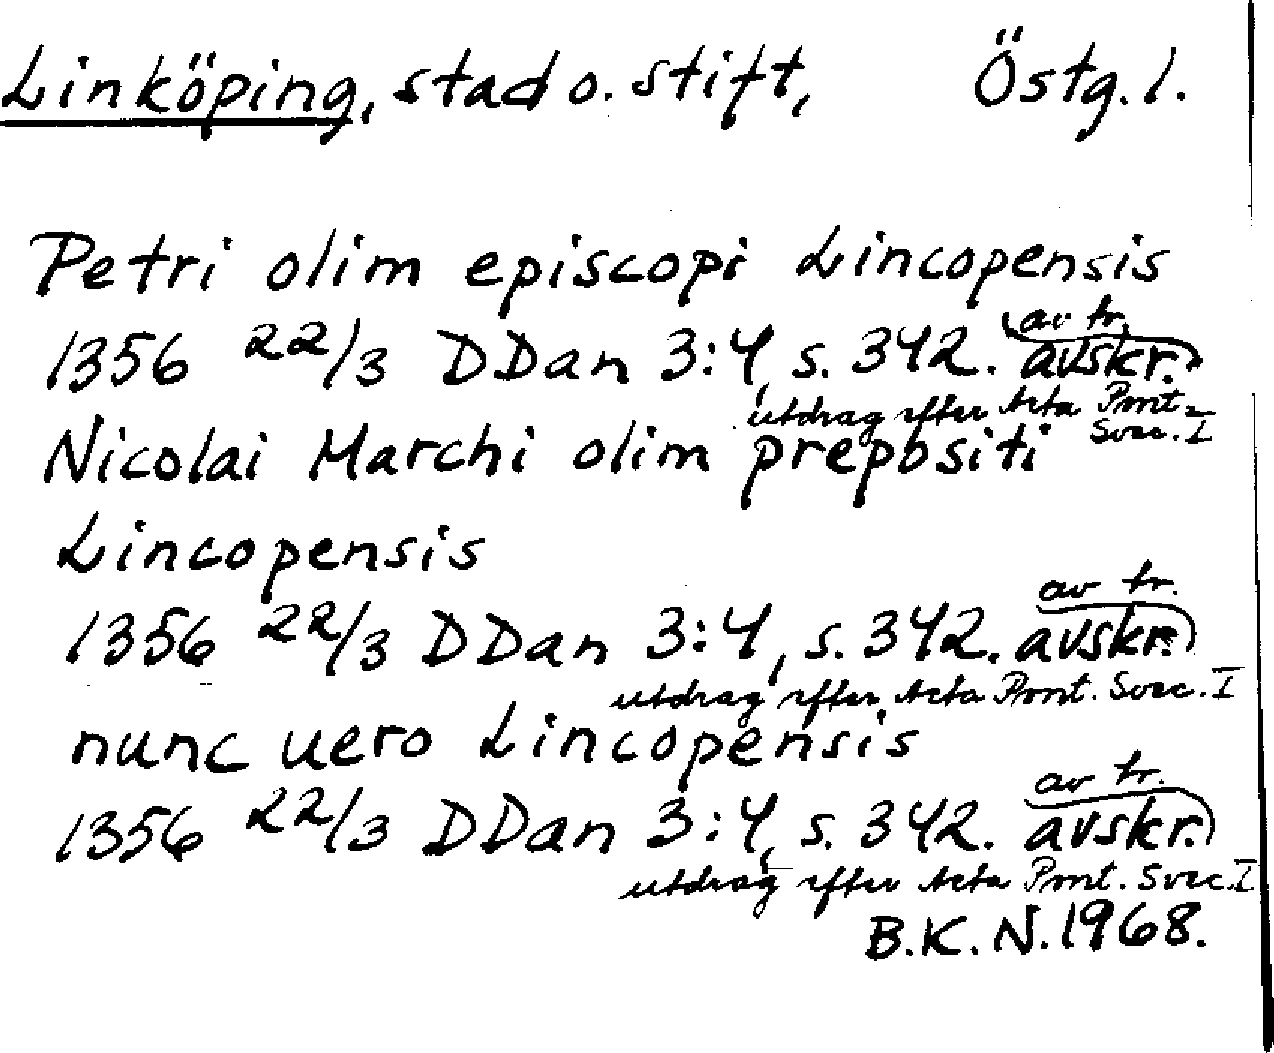 Linköping, stad o. stift, Östg. l.
Petri olim episcopi Lincopensis
1356 22/3 DDan 3:4, s. 342. av tr. avskr.
utdrag efter Acta Pont. Svec. I
Nicolai Marchi olim prepositi
Lincopensis
1356 22/3 DDan 3:4, s. 342. av tr. avskr.
utdrag efter Acta Pont. Svec. I
nunc uero Lincopensis
1356 22/3 DDan 3:4, s. 342. av tr. avskr.
utdrag efter Acta Pont. Svec. I
B.K.N. 1968.